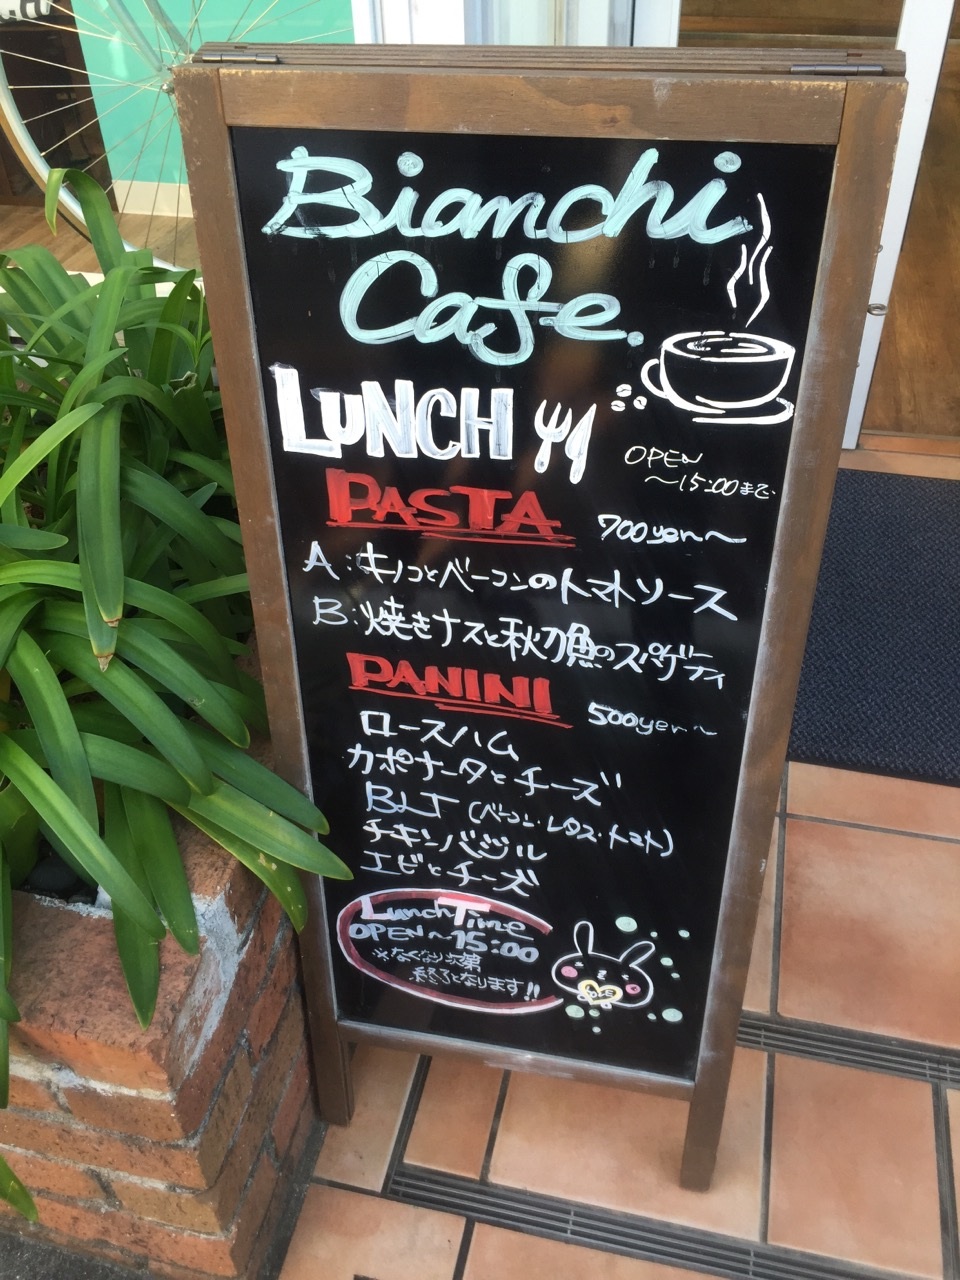 Bianchi
Cafe.
LUNCH
OPEN
～15:00まで
PASTA
700yen～
A:キノコとベーコンのトマトソース
B:焼きナスと秋刀魚のスパゲーティ
PANINI
500yen～
ロースハム
カポナータとチーズ
BLT (ベーコン・レタス・トマト)
チキンバジル
エビとチーズ
Lunch Time
OPEN～15:00
※なくなり次第
終了となります!!